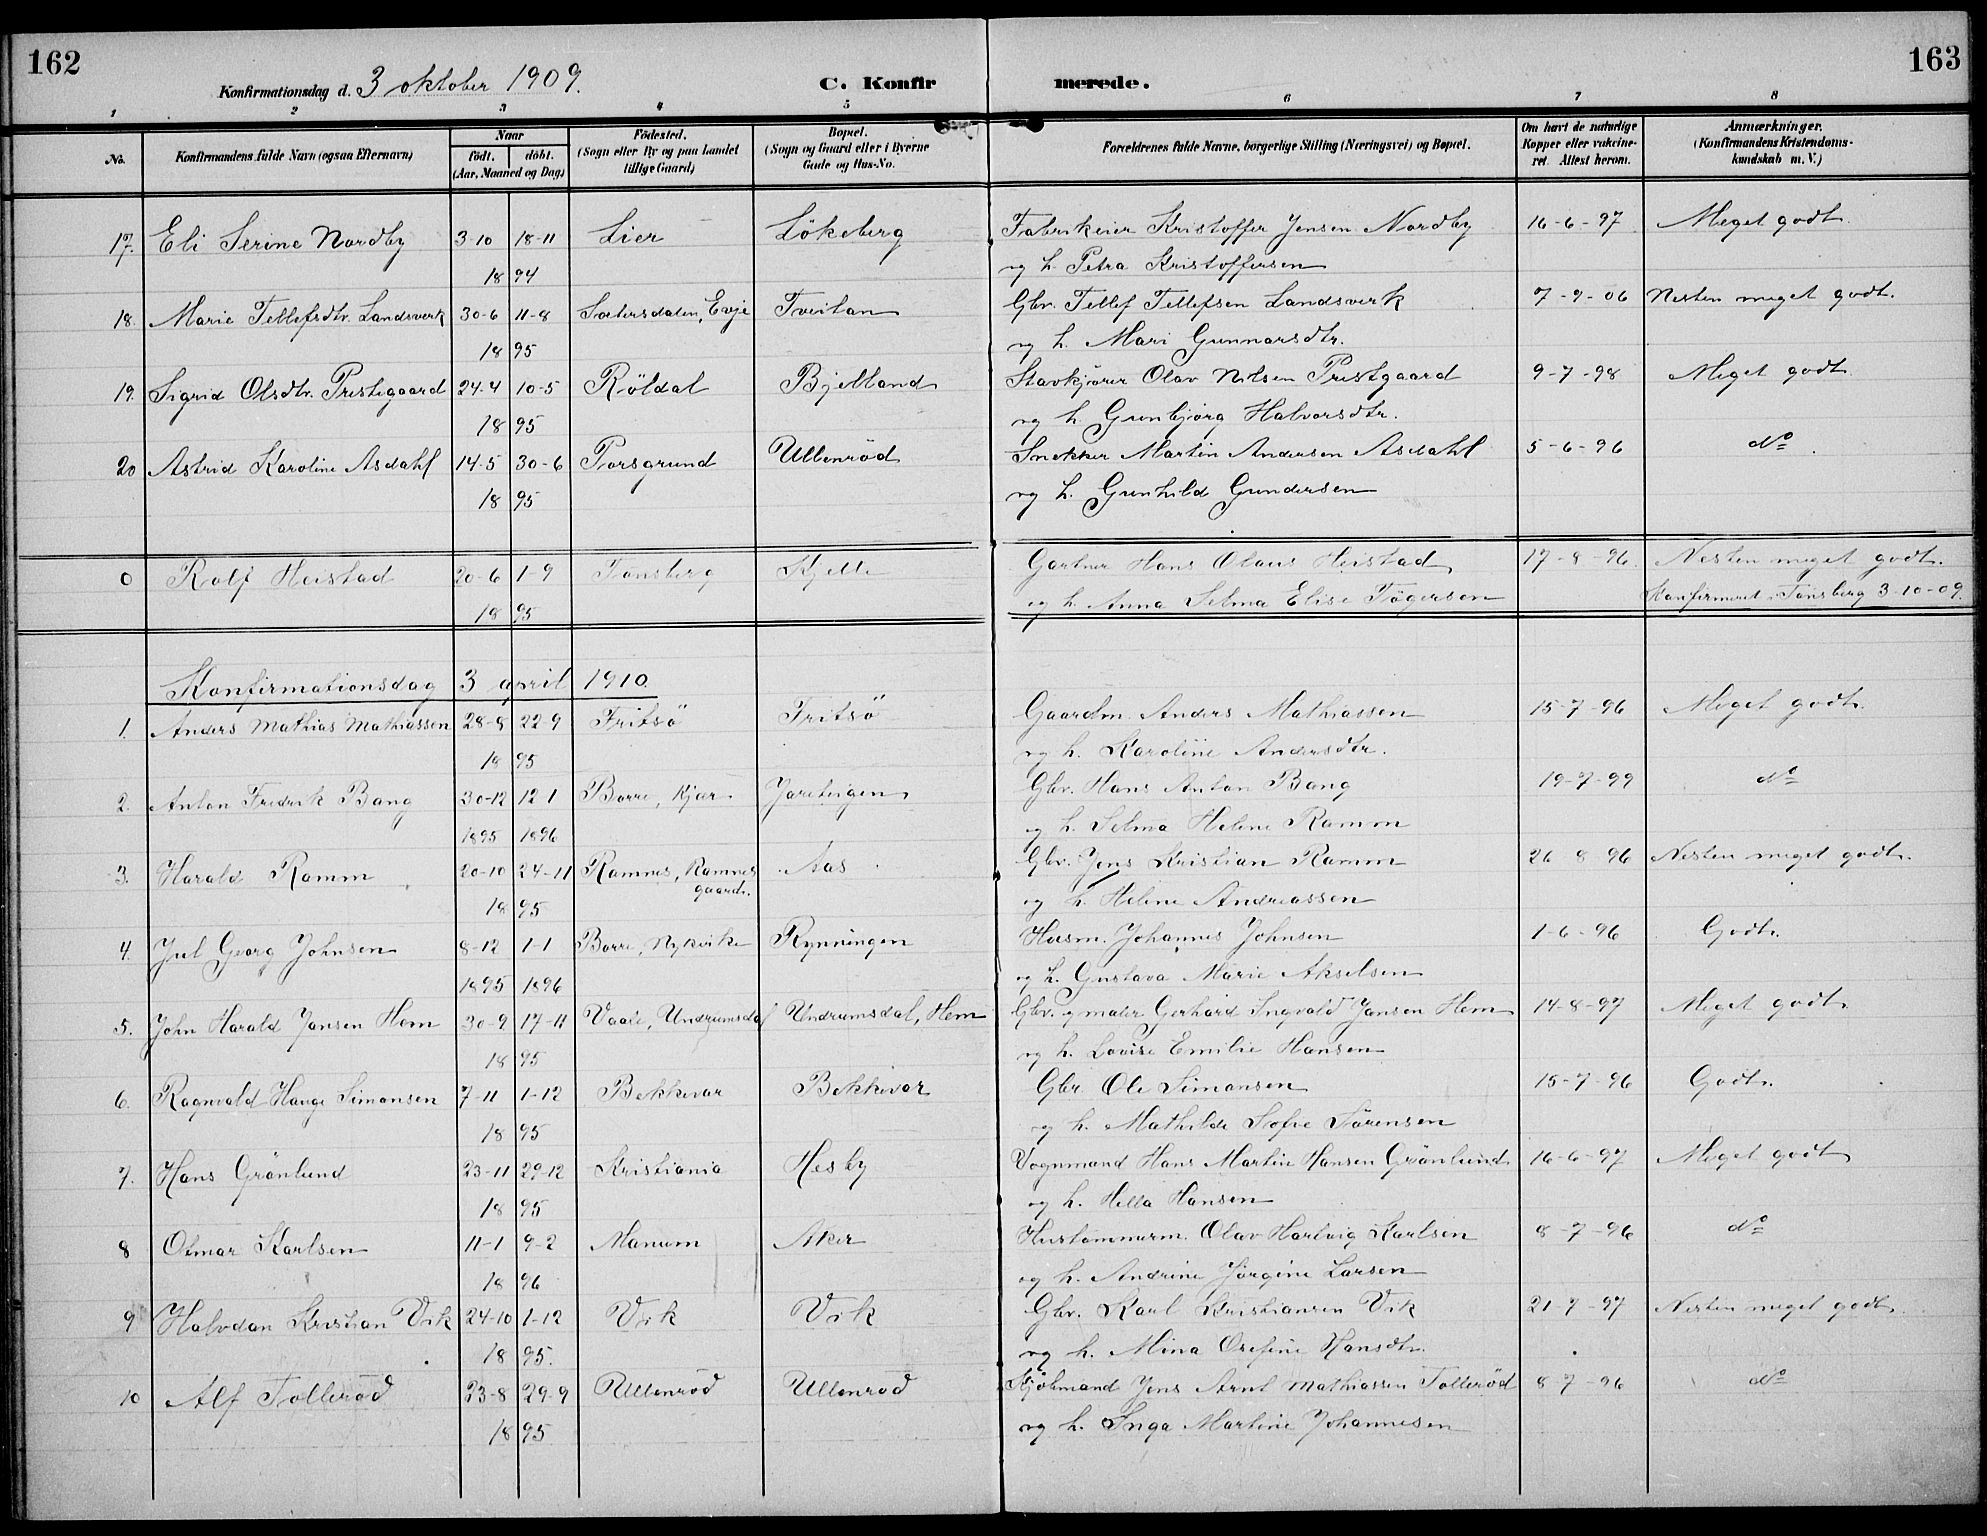 162
163
Konfirmationsdag d. 3 oktober 1909.
C. Konfirmerede.
1 2 3 4 5 6 7 8
No.
Konfirmandens fulde Navn (ogsaa Efternavn)
Naar
født. døbt.
(Aar, Maaned og Dag)
Fødested.
(Sogn eller By og paa Landet
tillige Gaard)
Bopæl.
(Sogn og Gaard eller i Byerne
Gade og Hus-No.
Forældrenes fulde Navne, borgerlige Stilling (Næringsvei) og Bopæl.
Om havt de naturlige
Kopper eller vakcine-
ret. Attest herom.
Anmærkninger.
(Konfirmandens Kristendoms-
kundskab m. V.)
17. Eli Serine Nordby 3-10 18-11 Lier Lökeberg Fabrikeier Kristoffer Jensen Nordby 16-6-97 Meget godt.
18 94 og h. Petra Kristoffersen
18. Marie Tellefsdtr. Landsverk 30-6 11-8 Sætersdalen, Evje Tveitan Gbr. Tellef Tellefsen Landsverk 7-9-06 Nesten meget godt.
18 95 og h. Mari Gunnarsdtr.
19. Sigrid Olsdtr. Prestegaard 24-4 10-5 Röldal Bjelland Stavkjörer Olav Nilsen Prestgaard 9-7-98 Meget godt
18 95 og h. Gunbjörg Halvorsdtr.
20 Astrid Karoline Asdahl 14-5 30-6 Porsgrund Ullenröd Snekker Martin Andersen Asdahl 5-6-96 do
18 95 og h. Gunhild Gundersen
0 Rolf Heistad 20-6 1-9 Tönsberg Kjelle Gartner Hans Olaus Heistad 17-8-96. Nesten meget godt.
18 95 og h. Anna Selma Elise Tögersen Konfirmeret i Tönsberg 3-10-09.
Konfirmationsdag 3 april 1910.
1. Anders Mathias Mathiassen 28-8 22-9 Fritsö Fritsö Gaardm. Anders Mathiassen 15-7-96 Meget godt.
18 95 og h. Karoline Andersdtr.
2. Anton Fredrik Bang 30-12 12-1 Borre, Kjær Jareteigen Gbr. Hans Anton Bang 19-7-99 do
1895 1896 og h. Selma Helene Ramm
3. Harald Ramm 20-10 24-11 Ramnes, Ramnes gaard. Aas Gbr. Jens Kristian Ramm 26-8-96 Nesten meget godt.
18 95 og h. Helene Andreassen
4. Jul Georg Johnsen 8-12 1-1 Borre, Nykirke Rynningen Husm. Johannes Johnsen 1-6-96 Godt.
1895 1896 og h. Gustava Marie Akselsen
5. John Harald Jansen Hem 30-9 17-11 Vaale, Undrumsdal Undrumsdal, Hem Gbr. og maler Gerhard Ingvald Jansen Hem 14-8-97 Meget godt
18 95 og h. Lovise Emilie Hansen
6. Ragnvald Hauge Simonsen 7-11 1-12 Bekkevar Bekkevar Gbr. Ole Simonsen 15-7-96 Godt.
18 95 og h. Mathilde Sofie Sörensen
7. Hans Grönlund 23-11 29-12 Kristiania Hesby Vognmand Hans Martin Hansen Grönlund 16-6-97 Meget godt
18 95 og h. Hella Hansen
8 Otmar Karlsen 11-1 9-2 Manum Aker Hustömmerm. Olav Hartvig Karlsen 8-7-96 do
18 96 og h. Andrine Jörgine Larsen
9 Halvdan Kristian Vik 24-10 1-12 Vik Vik Gbr. Karl Kristiansen Vik 21-7-97 Nesten meget godt.
18 95. og h. Mina Osefine Hansdtr.
10 Alf Tolleröd 23-8 29-9 Ullenröd Ullenröd Kjöbmand Jens Arnt Mathiassen Tolleröd 8-7-96 do
18 95 og h. Inga Martine Johannesen